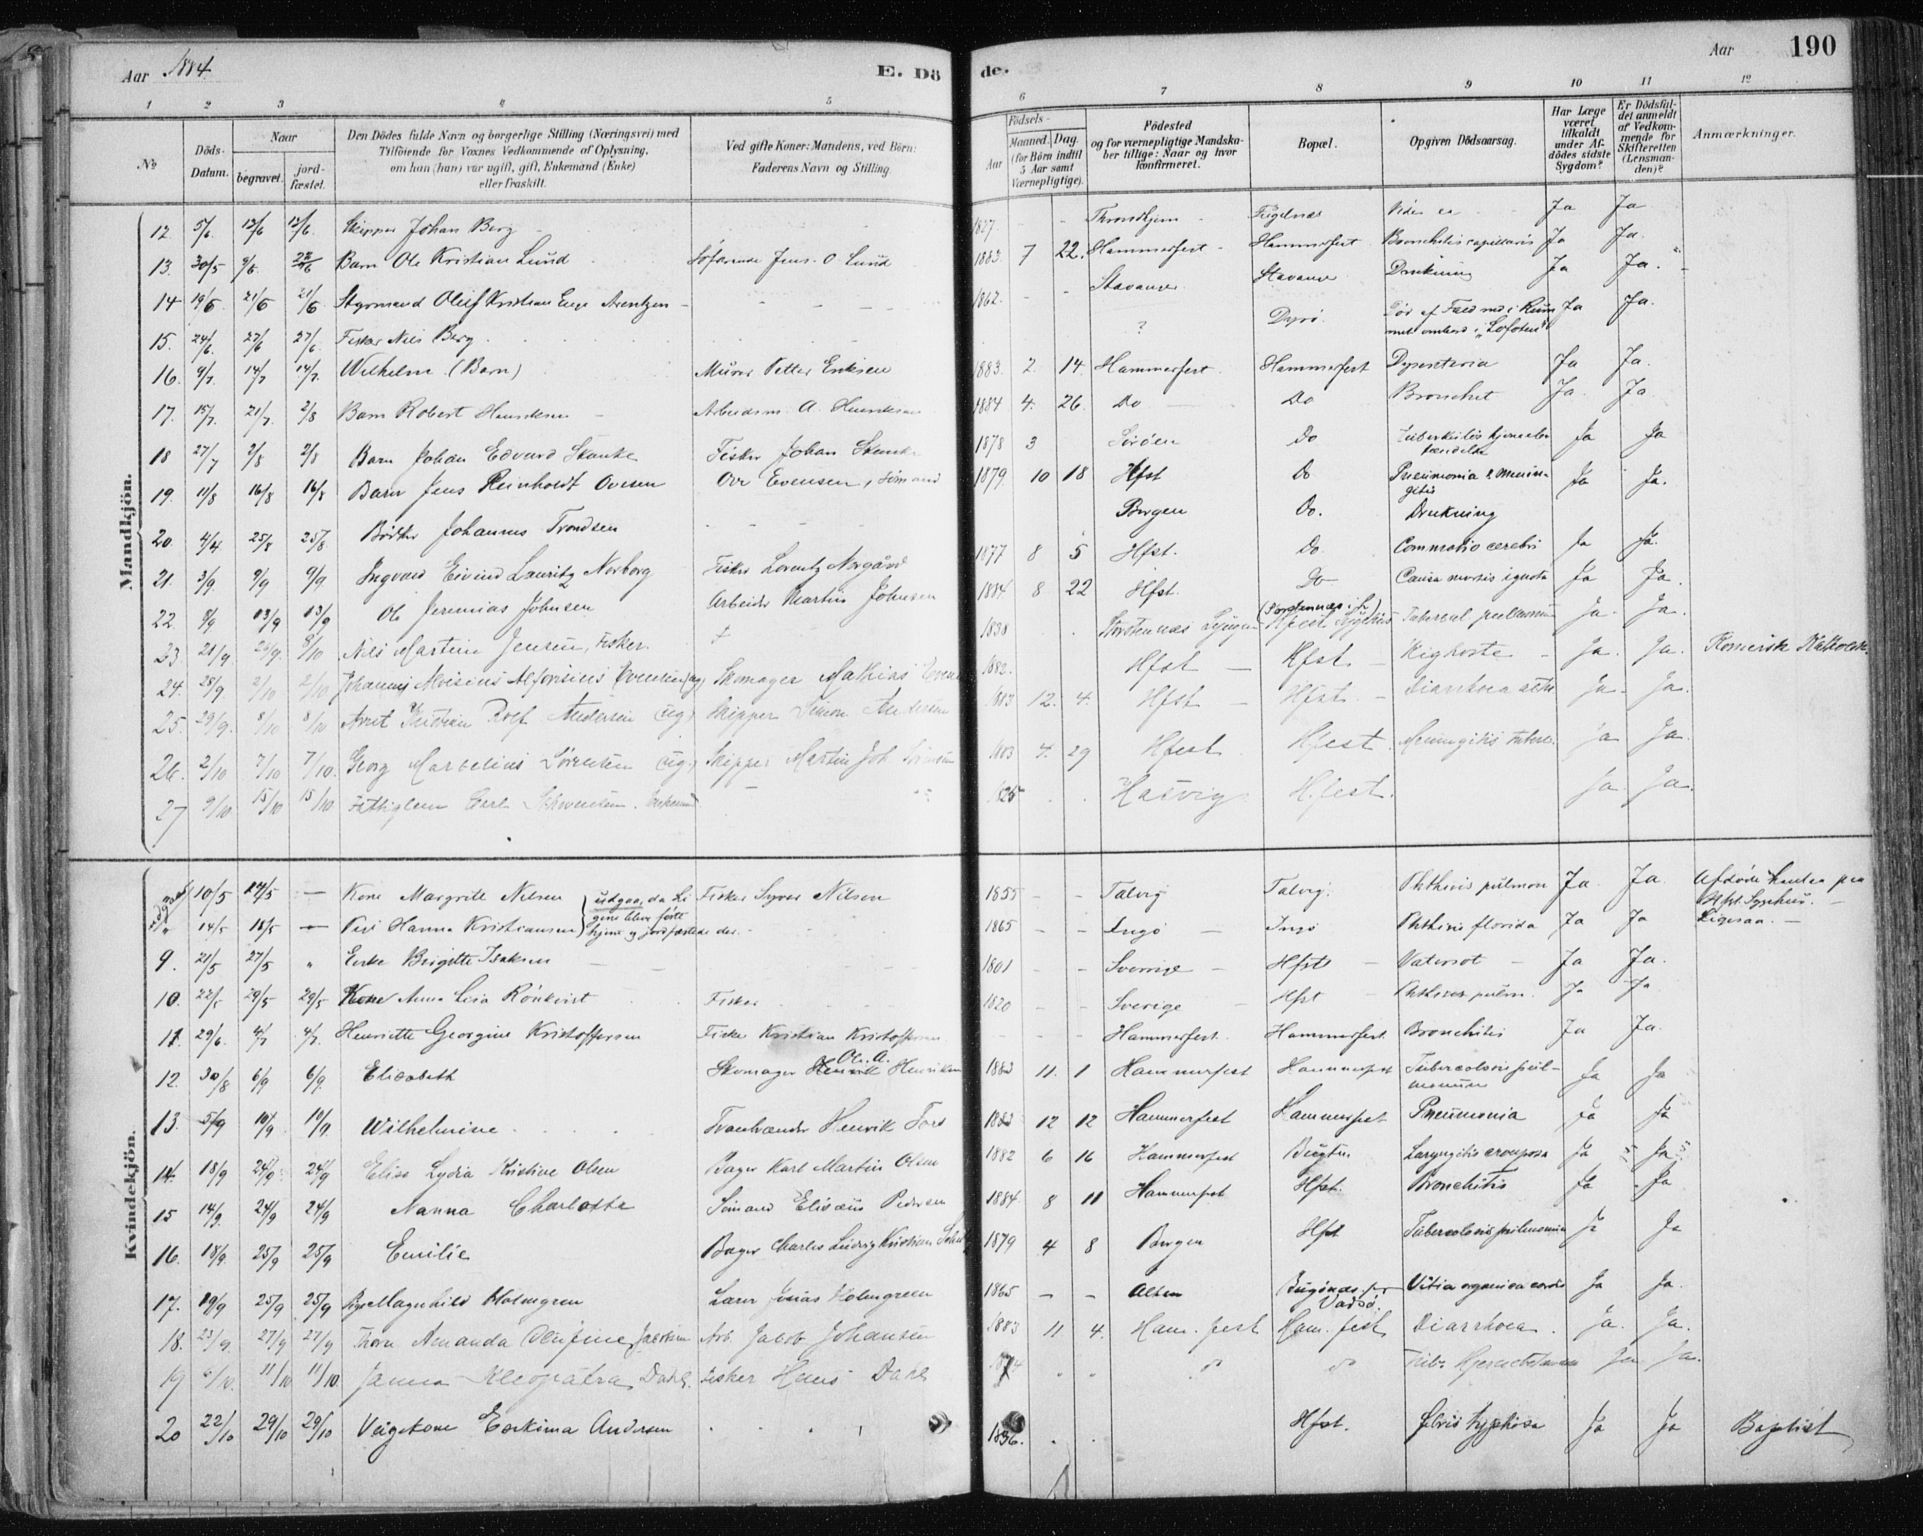 Aar 1884.
E. Dö
de.
Aar
190
1 2 3 4 5
6 7 8 9 10 11 12
No
Döds-Datum.
Naar
begravet.
jord-fæstet.
Den Dödes fulde Navn og borgerlige Stilling (Næringsvei) med
Tilföiende for Voxnes Vedkommende af Oplysning,
om han (hun) var ugift, gift, Enkemand (Enke)
eller fraskilt.
Ved gifte Koner: Mandens, ved Börn:
Faderens Navn og Stilling.
Födsels-
Aar
Maaned. Dag.
(for Börn indtil
5 Aar samt
Værnepligtige).
Födested
og for værnepligtige Mandska-
ber tillige: Naar og hvor
konfirmeret.
Bopæl.
Opgiven Dödsaarsag.
Har Læge
været
tilkaldt
under Af-
dödes sidste
Sygdom?
Er Dödsfal-
det anmeldt
af Vedkom-
mende for
Skifteretten
(Lensman-
den)?
Anmærkninger.
Mandkjön.
12. 5/6. 13/6 13/6. Skipper Johan Berg 1827. - - Throndhjem Fuglenæs Ja Ja
13. 30/5 Barn Ole Kristian Lund Søfarende Jens O. Lund 1883. 7 22. Hammerfest Hammerfest Bronchitis capillaris Ja Ja.
14 19/6 21/6 21/6 Styrmand Oluf Kristian Arentzen 1862. - - Stavanger Stavanger Drukning Ja Ja.
15. 24/6. 27/6 27/6. Fisker Nils Berg ? Dyrø. Død af Fald ned i Rum
met ombord i "Lofoten" Ja Ja.
16. 9/7. 14/7 14/7. Wilhelm (Barn) Murer Petter Eriksen 1883. 2. 14. Hammerfest. Hammerfest Dysenteria Ja Ja.
17. 15/7. 21/7. 2/8 Barn Robert Henriksen Arbeidsm. A. Henriksen 1884 4. 26. Do Do Bronchit Ja. Ja.
18 27/7 2/8 2/8 Barn Johan Edvard Skanke Fisker Johan Skanke 1878 3 Sørøen Do Ja Ja
19. 11/8 16/8 16/8 Barn Jens Reinholdt Ovesen Ove Evensen, Sømand 1879 10 18 Hfst Do Pneumonia & Menin-
gitis Ja Ja.
20 4/4 25/8 25/8 Bødker Johannes Trondsen Bergen Do. Drukning
21. 3/9. 9/9 9/9 Ingvard Eivind Lauritz Norborg Fisker Lorentz Norgård 1877 8 5 Hfst. Do Commotio cerebri Ja Ja.
22 8/9 13/9 13/9 Ole Jeremias Johnsen Arbeider Martin Johnsen 1884. 8 22 Hfst. Do Causa mortis ignota Ja Ja.
23. 21/9. 8/10 Nils Martin Jensen, Fisker. 1838 Storstennæs Lyngen Hfest Sygehus Ja. Ja.
24. 28/9 2/10 2/10 Johannes Evensen Skomager Mathias 1882. Hfst Hfst Kighoste Ja. Ja. Romersk Katholsk.
25. 29/9. 8/10 8/10 Kristian Rolf Andersen Skipper Simon Andersen 1883 12. 4. Hfst Hfst. Diarrhoea Ja. Ja.
26. 2/10 7/10 7/10. Georg Marselius Sørensen Skipper Martin Joh. Sørensen 1883 4. 29 Hfest Hfest. Meningitis tuberc. Ja Ja.
27 9/10 15/10 15/10 1825 Hasvig Hfest. Ja Ja.
Kvindekjön.
10/5 17/5 — Kone Margrethe Nilsen Fisker Nilsen 1855 - - Talvig Talvig. Phthisis pulmon Ja. Ja. Afdøde hentea paa
Hfst. Sygehus.
udgaar, da Li
gene blev førte
hjem og jordfæstede der.
" 14/5 18/5 — Hanna Kristiansen 1865 - - Ingø Ingø Phthisis florida Ja Ja Ligesaa. —
9. 21/5 27/5 " Enke Brigitte Isaksen 1801 - - Sverrige Hfst Vatersot Ja Ja.
10. 22/5 29/5 29/5 Kone Anna Lisa Rönkvist Fisker 1820 - - Sverige Hfst Phthisis pulm. Ja Ja
11. 29/6. 4/7 4/7. Henriette Georgine Kristoffersen Fisker Kristian Kristoffersen - - - Hammerfest Hammerfest Bronchitis Ja Ja.
12. 30/8 6/9 6/9. Elisabeth Skomager Ole A. Henriksen 1883 11. 1 Hammerfest Hammerfest Tuberculosis pul-
monum Ja Ja
13. 5/9 10/9. 10/9. Wilhelmine Henrik 1883 12 12 Hammerfest Hammerfest Pneumonia Ja Ja
14. 18/9 24/9. 24/9 Elise Lydia Kristine Olsen Bager Karl Martin Olsen 1882 6 16 Hammerfest Bugten Laryngitis crouposa Ja Ja
15 14/9. 24/9 24/9 Nanna Charlotte Sømand Elisæus Pedersen 1884. 8 11 Hammerfest Hfst. Bronchitis Ja Ja
16. 18/9. 25/9 25/9 Emilie Bager Charles Ludvig Kristian 1879 4 8 Bergen Hfst Tuberculosis pulmonum Ja Ja
17. 19/9 25/9 25/9 Pige Magnhild Holmgren Lærer Josias Holmgreen 1865 - - Alten Bugønæs pr
Vadsø. Vitia organica cordis Ja Ja.
18. 23/9. 27/9 27/9 Thora Amanda Olufine Jacobsen Arb. Jacob Johansen 1883 11 4. Ham.fest Ham.fest Diarrhoea. Ja. Ja.
19 11/10 11/10. Kleopatra Dahl. Fisker Hans Dahl do do Ja Ja.
20 22/10 29/10 29/10 Andersen 1836. Hfst. febris typhosa Ja Ja Baptist